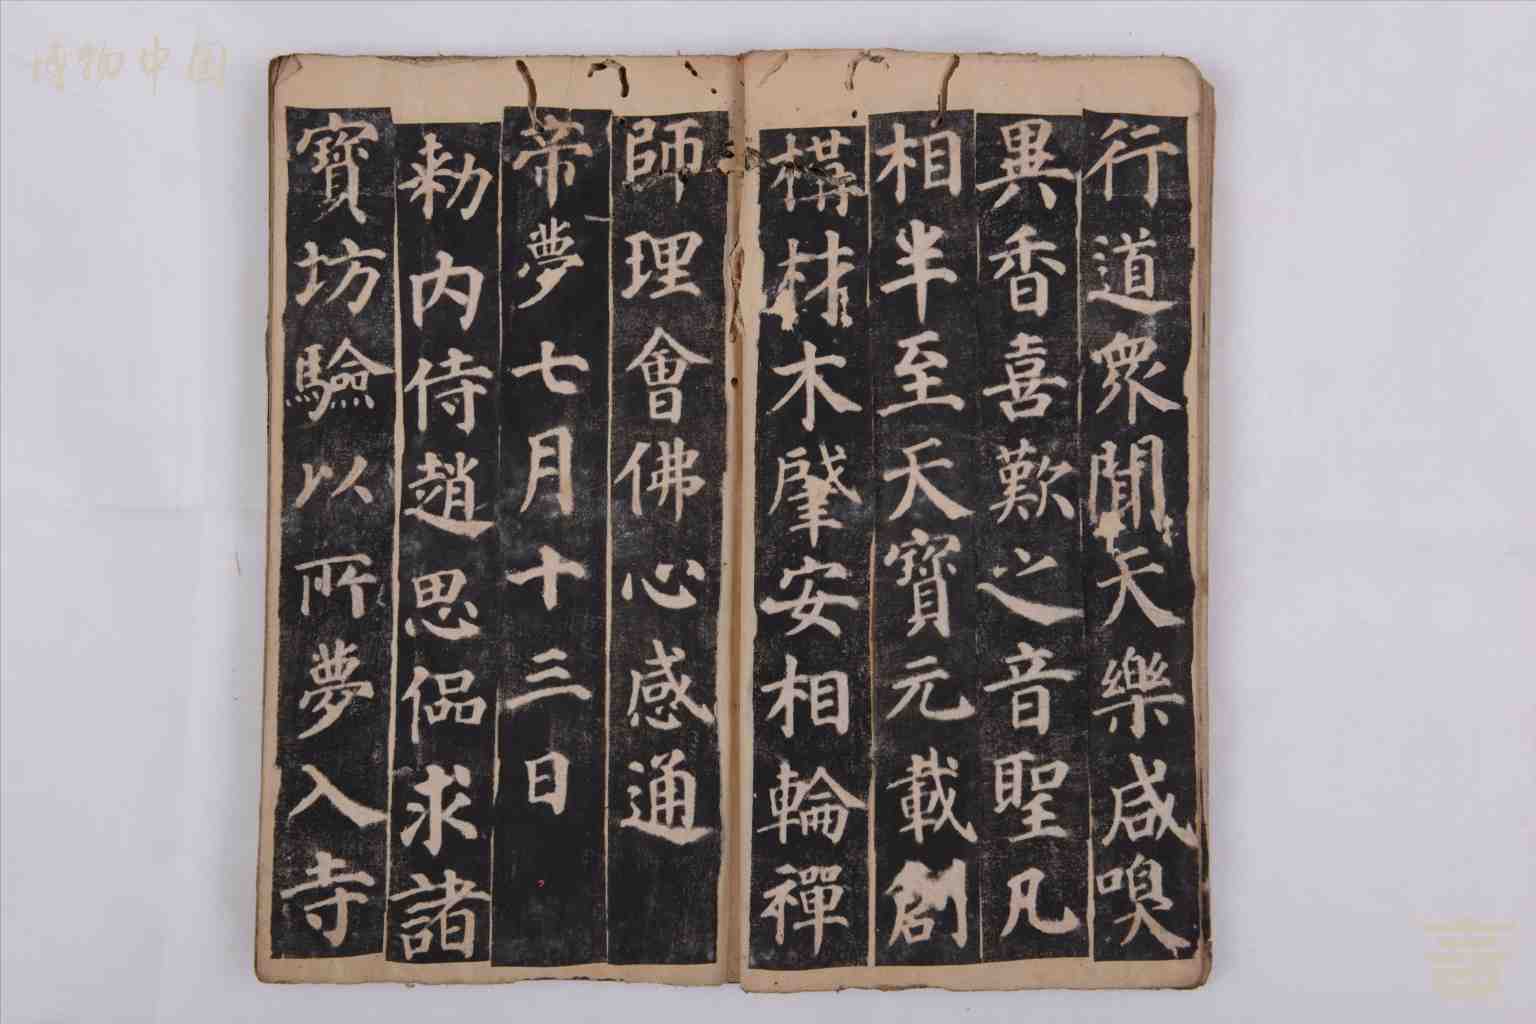 博物中国
行道眾聞天樂咸嗅
異香喜歎之音聖凡
相半至天寶元載創
構材木肇安相輪禪
師理會佛心感通
帝夢七月十三日
勑內侍趙思偘求諸
寶坊驗以所夢入寺